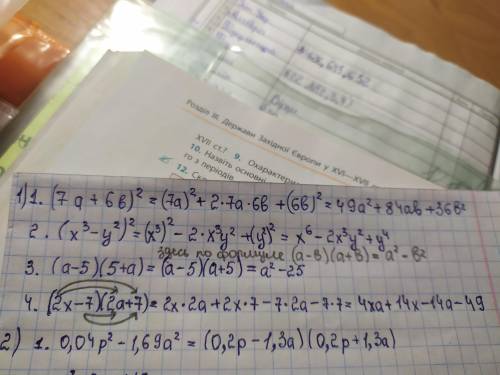 Розділ III. Держави Західної Європи у XVI–XVII
XVII ст.? 9. Охарактери
10. Назвіть основні
го з періодів
12.
1) 1. (7a + 6b)² = (7a)² + 2·7a·6b + (6b)² = 49a² + 84ab + 36b²
2. (x³ - y²)² = (x³)² - 2·x³y² + (y²)² = x⁶ - 2x³y² + y⁴
здесь по формуле (a-b)(a+b) = a² - b²
3. (a-5)(5+a) = (a-5)(a+5) = a² - 25
4. (2x-7)(2a+7) = 2x·2a + 2x·7 - 7·2a - 7·7 = 4xa + 14x - 14a - 49
2) 1. 0,04p² - 1,69a² = (0,2p - 1,3a)(0,2p + 1,3a)